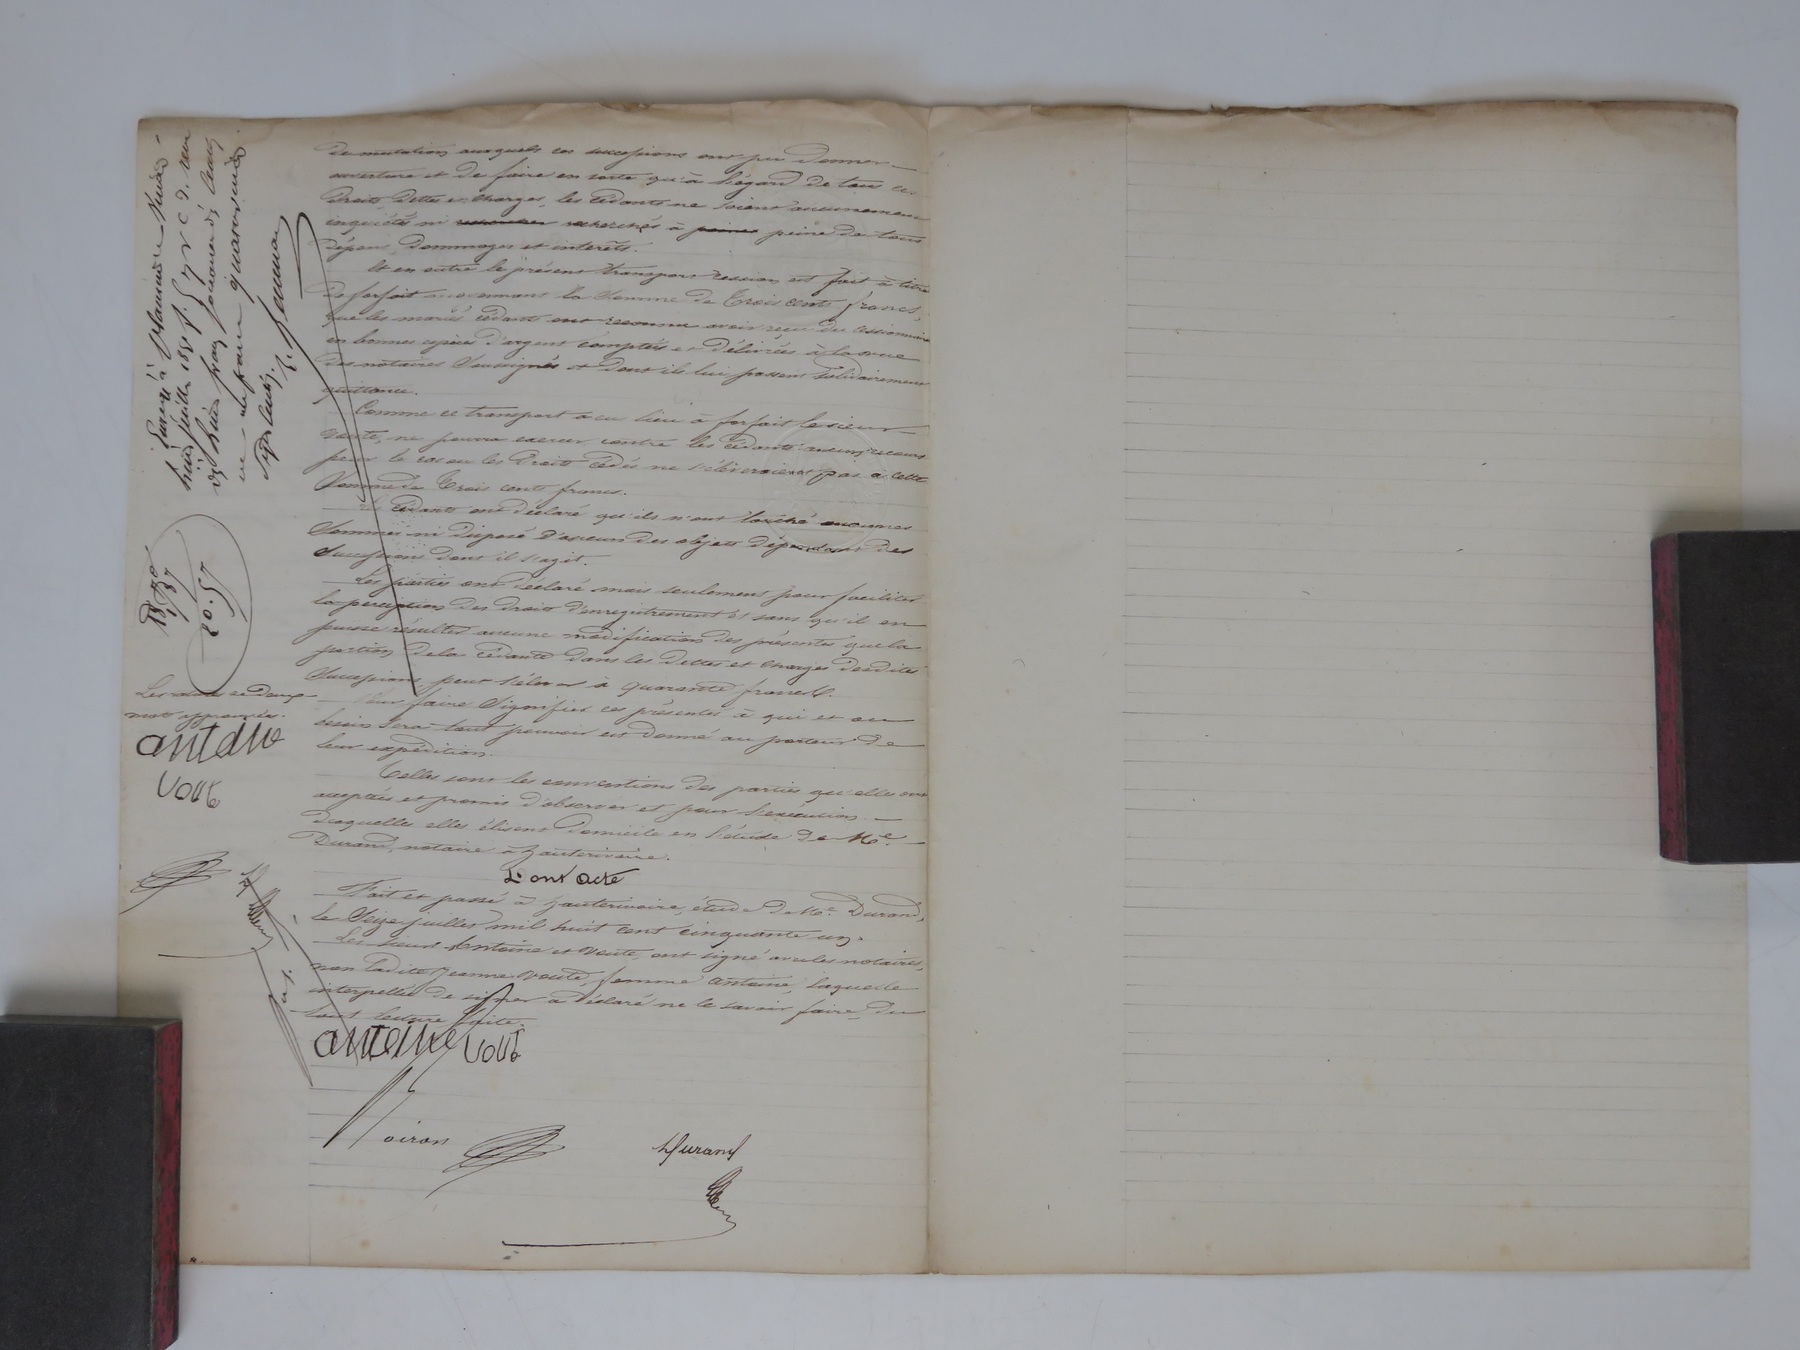 de mutations auxquels ces successions ont pu donner
ouverture et de faire en sorte qu'à l'égard de tous ces
droits, dettes et charges, les cédants ne soient aucunement
inquiétés ni recherchés à peine de tous
dépens, dommages et intérêts.
Et en outre le présent transport cession est fait à titre
de forfait moyennant la somme de Trois cents francs,
que les mariés cédants ont reconnu avoir reçu du cessionnaire
en bonnes espèces d'argent comptées et délivrées à la vue
des notaires soussignés et dont ils lui passent solidairement
quittance.
Comme ce transport a eu lieu à forfait le sieur
Voute, ne pourra exercer contre les cédants aucun recours
pour le cas où les droits cédés ne s'élèveraient pas à cette
somme de Trois cents francs.
Les cédants ont déclaré qu'ils n'ont touché aucunes
sommes ni disposé d'aucun des objets dépendant des
successions dont il s'agit.
Les parties ont déclaré mais seulement pour faciliter
la perception des droits d'enregistrement et sans qu'il en
puisse résulter aucune modification des présentes que la
portion de la cédante dans les dettes et charges desdites
successions peut s'élever à quarante francs.
Pour faire signifier ces présentes à qui et où
besoin sera tout pouvoir est donné au porteur de
leur expédition.
Telles sont les conventions des parties qu'elles ont
acceptées et promis d'observer et pour l'exécution
desquelles elles élisent domicile en l'étude de Me
Durand, notaire à hauterivoire.
Dont acte
Fait et passé à hauterivoire, étude de Me Durand,
le Seize juillet mil huit cent cinquante un.
Les sieurs Antoine et Voute, ont signé avec les notaires,
non ladite Jeanne Voute, femme Antoine, laquelle
interpellée de signer a déclaré ne le savoir faire, du
tout lecture faite.
antoine Vout
Noiron
Durand
juillet 1851 f.
francs
quarante
18.70
1.87
20.57
mots
antoine
Vout